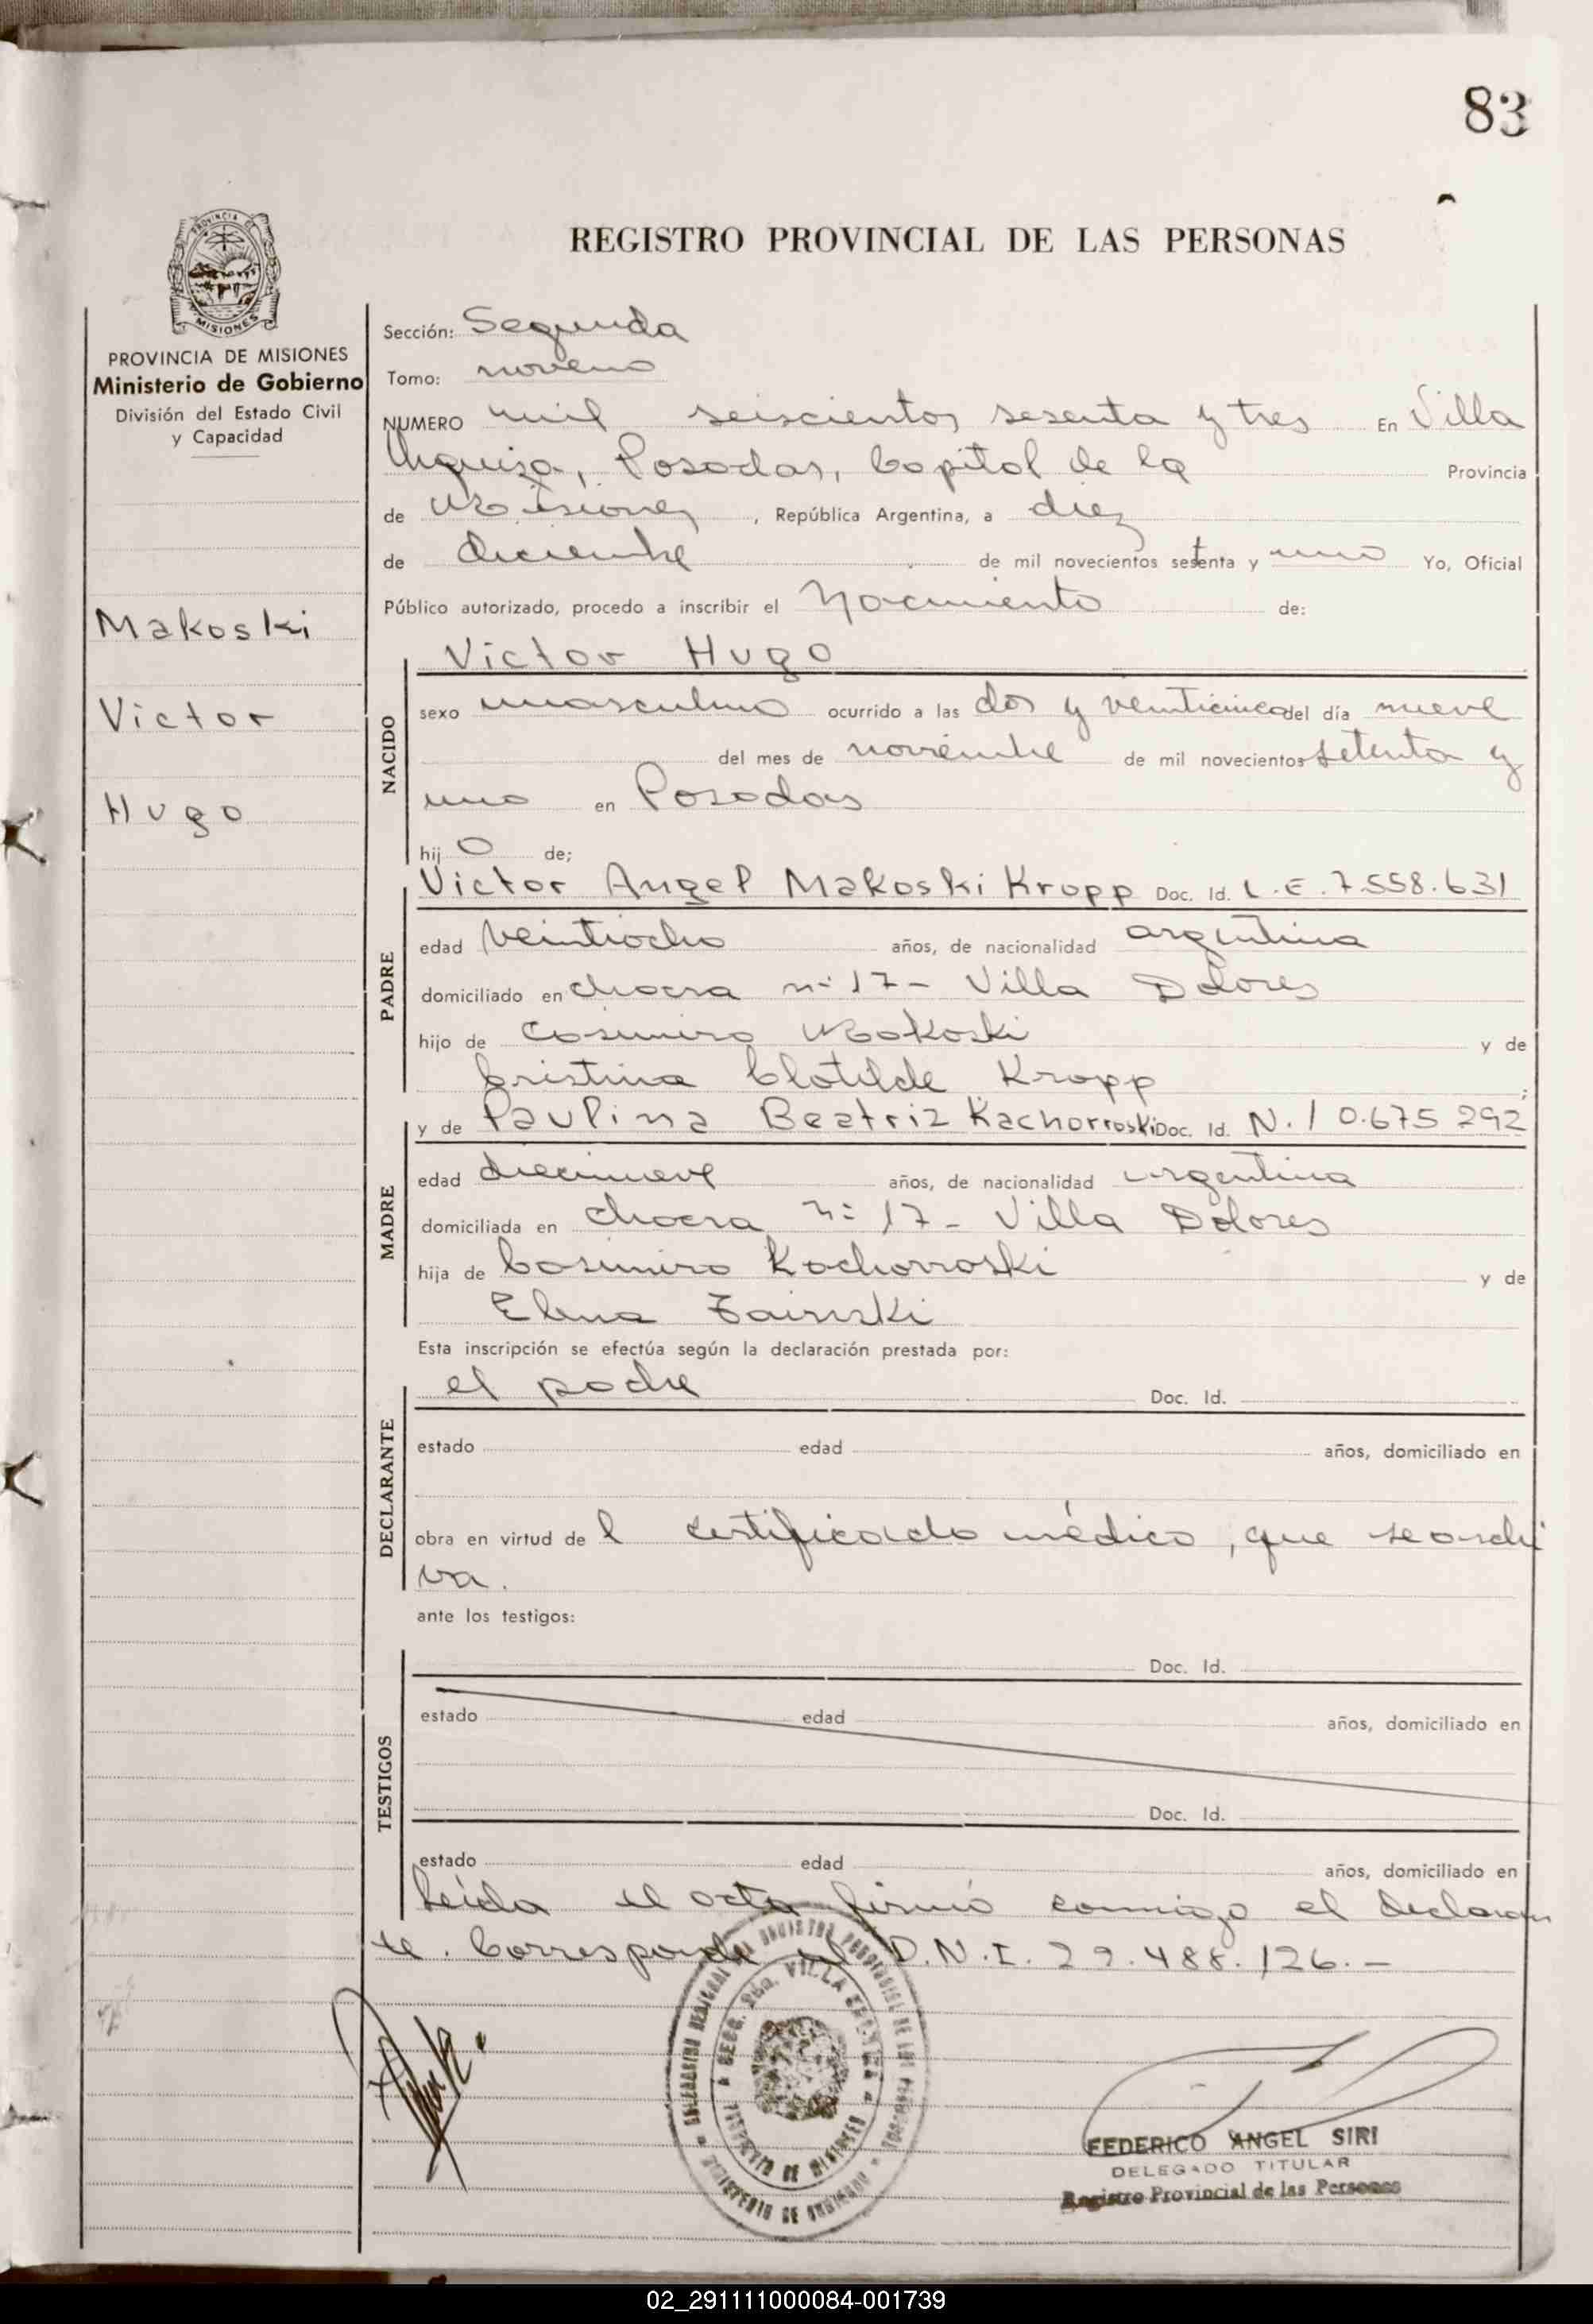 83
PROVINCIA DE
MISIONES
REGISTRO PROVINCIAL DE LAS PERSONAS
PROVINCIA DE MISIONES
Ministerio de Gobierno
División del Estado Civil
y Capacidad
Makoski
Victor
Hugo
Sección: Segunda
Tomo: noveno
NUMERO mil seiscientos sesenta y tres En Villa
Urquiza, Posadas, Capital de la Provincia
de Misiones, República Argentina, a diez
de diciembre de mil novecientos setenta y uno Yo, Oficial
Público autorizado, procedo a inscribir el Nacimiento de:
NACIDO
Victor Hugo
sexo masculino ocurrido a las dos y veinticinco del día nueve
del mes de noviembre de mil novecientos setenta y
uno en Posadas
hij o de;
PADRE
Victor Angel Makoski Kropp Doc. Id. L.E.7.558.631
edad veintiocho años, de nacionalidad argentina
domiciliado en chacra nº 17 - Villa Dolores
hijo de Casimiro Makoski y de
Cristina Clotilde Kropp ;
MADRE
y de Paulina Beatriz Kachorroski Doc. Id. N. 10.675 292
edad diecinueve años, de nacionalidad argentina
domiciliada en chacra nº 17 - Villa Dolores
hija de Casimiro Kachorroski y de
Elena
Esta inscripción se efectúa según la declaración prestada por:
DECLARANTE
el padre Doc. Id.
estado edad años, domiciliado en
obra en virtud de l certificado médico, que se archi
va.
ante los testigos:
TESTIGOS
Doc. Id.
estado edad años, domiciliado en
Doc. Id.
estado edad años, domiciliado en
Leída el acta firmó conmigo el declaran
te. Corresponde al D.N.I. 22.488.126.-
SECC. 2da. VILLA
DE MISIONES
FEDERICO ANGEL SIRI
DELEGADO TITULAR
Registro Provincial de las Personas
02_291111000084-001739